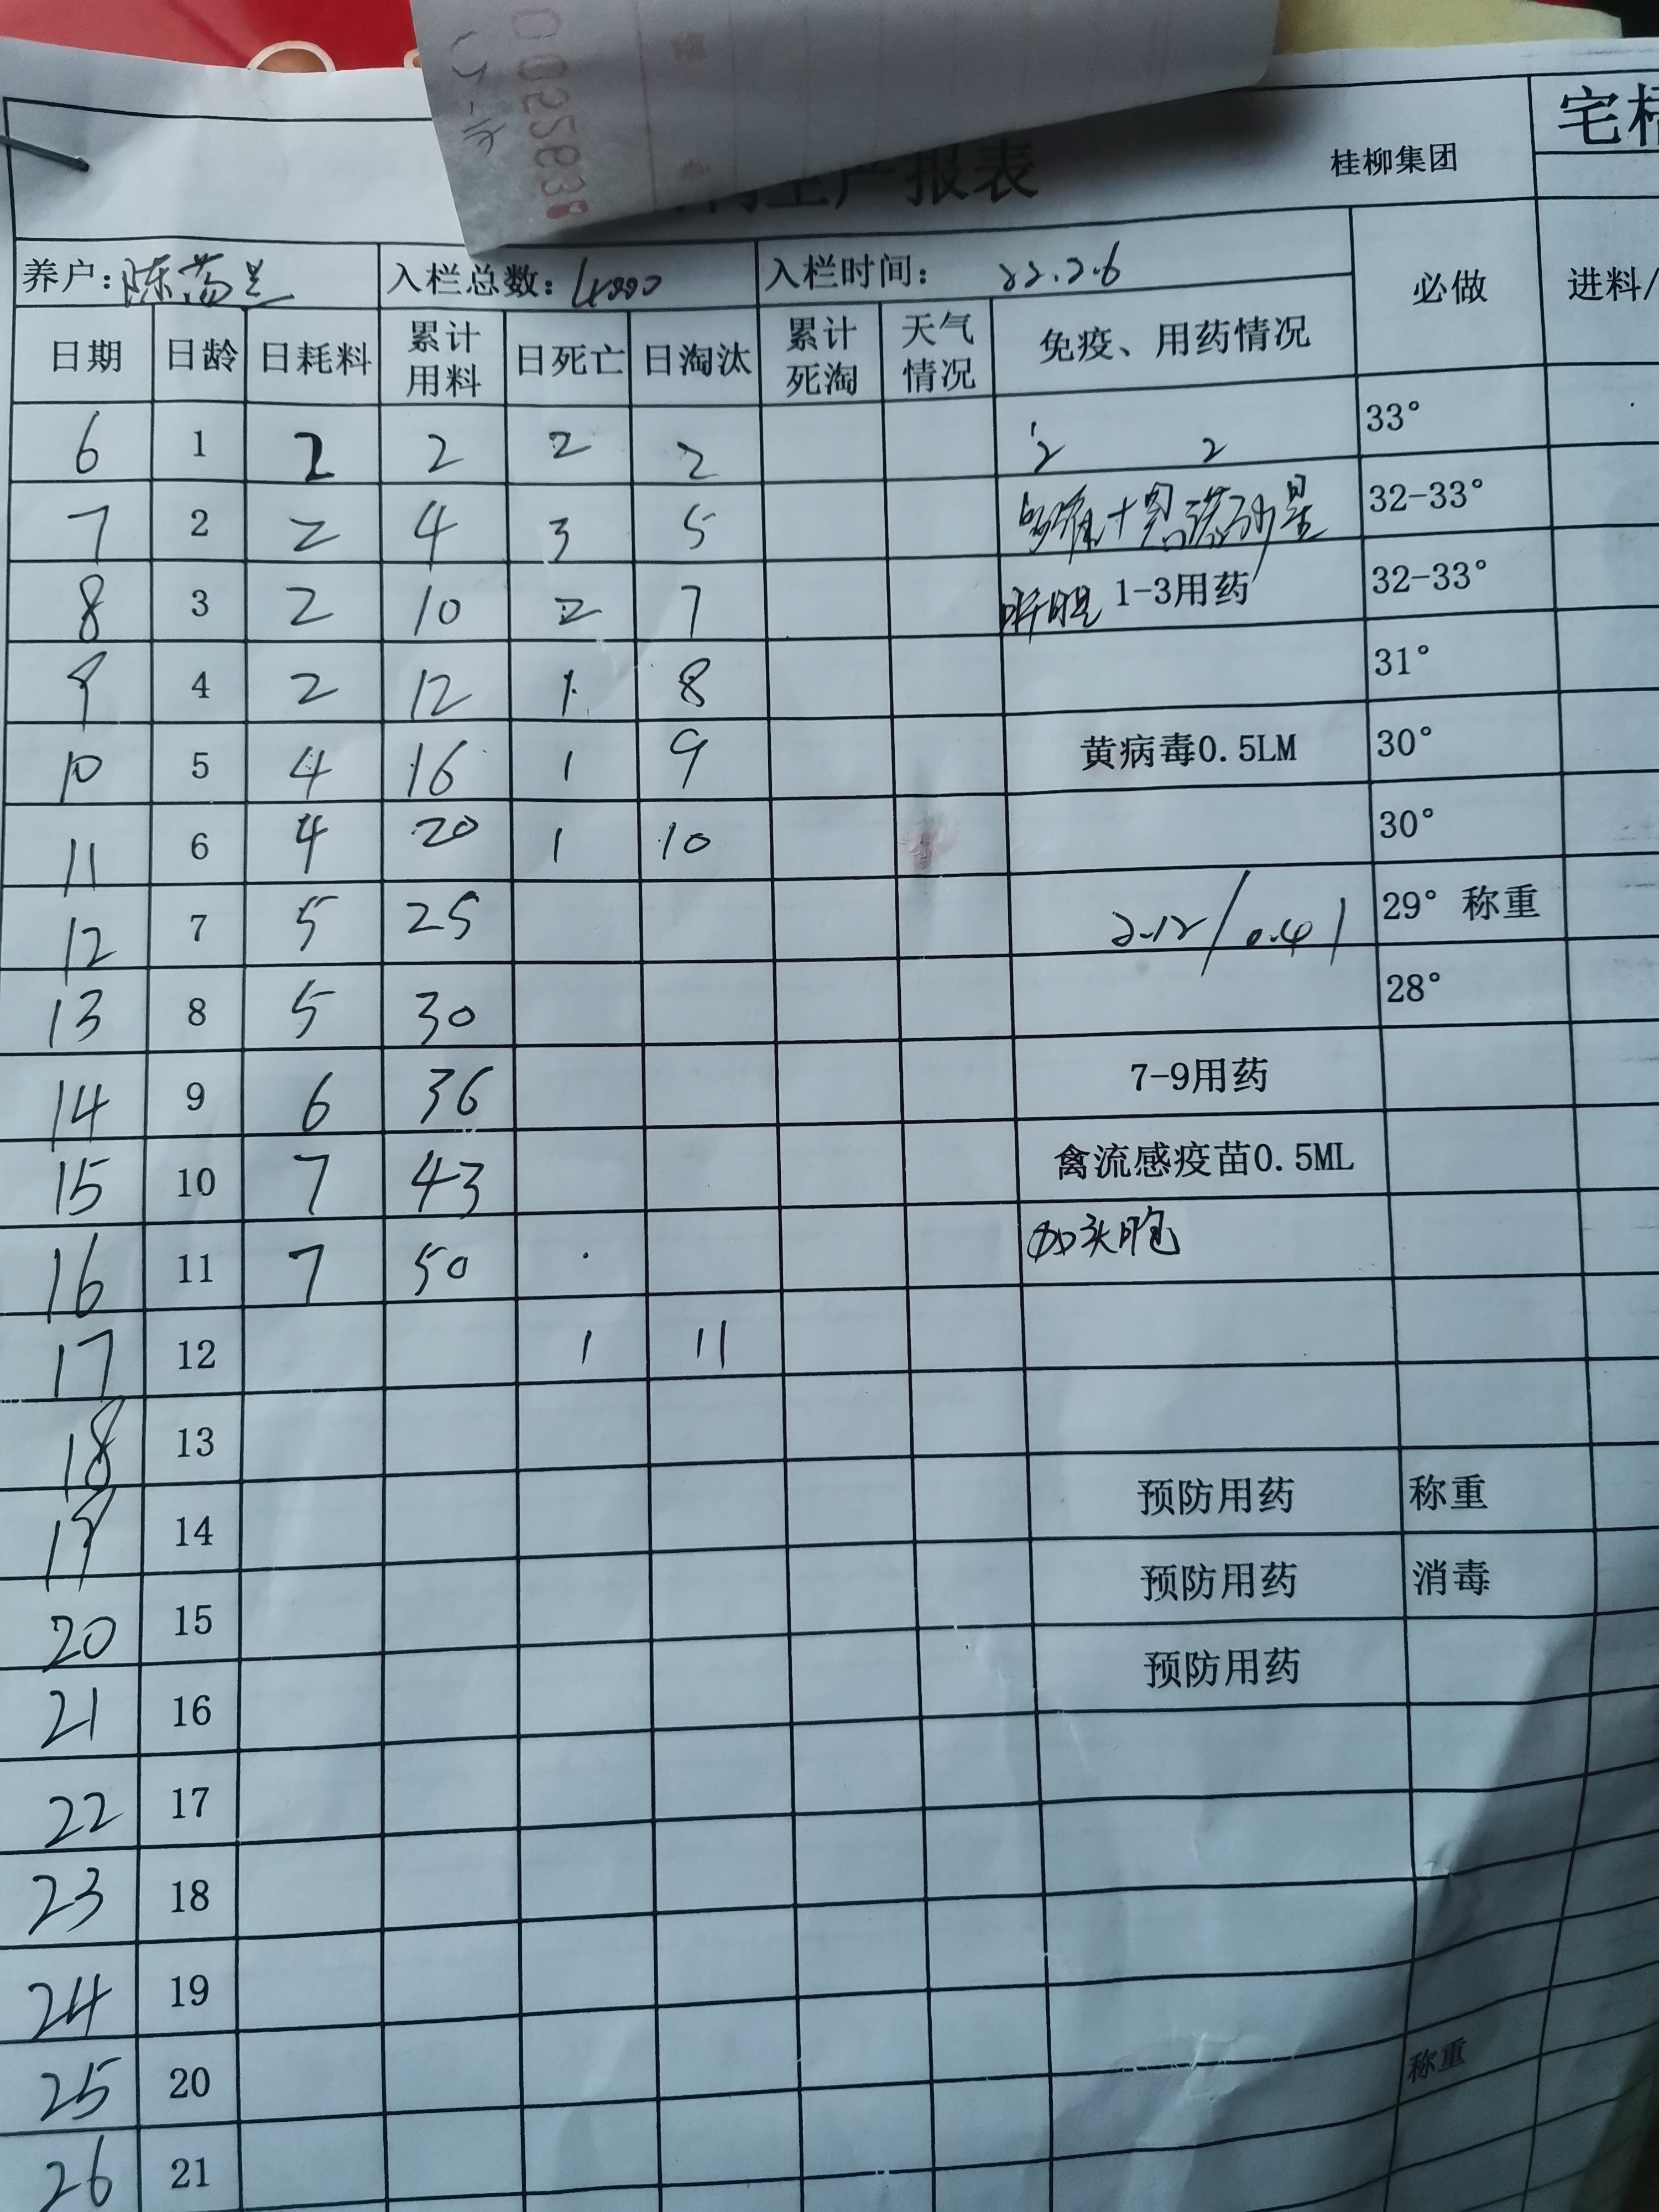 0025838
产报表
桂柳集团
宅
养户: 陈 入栏总数: 4000 入栏时间: 22.2.6 必做 进料/
日期 日龄 日耗料 累计用料 日死亡 日淘汰 累计死淘 天气情况 免疫、用药情况
6 1 2 2 2 2 2 2 33°
7 2 2 4 3 5 多维+恩诺砂星 32-33°
8 3 2 10 2 7 肝胆 1-3用药 32-33°
9 4 2 12 1 8 31°
10 5 4 16 1 9 黄病毒0.5LM 30°
11 6 4 20 1 10 30°
12 7 5 25 2.12/0.41 29° 称重
13 8 5 30 28°
14 9 6 36 7-9用药
15 10 7 43 禽流感疫苗0.5ML
16 11 7 50 加头胞
17 12 1 11
18 13
19 14 预防用药 称重
20 15 预防用药 消毒
21 16 预防用药
22 17
23 18
24 19
25 20 称重
26 21